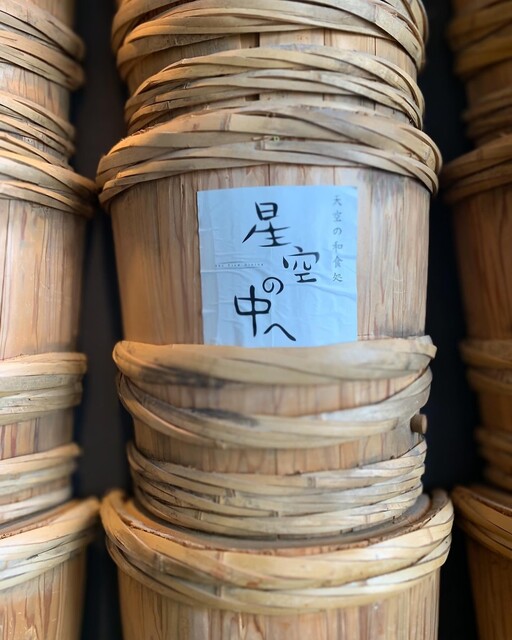 天空の和食処
星空の中へ